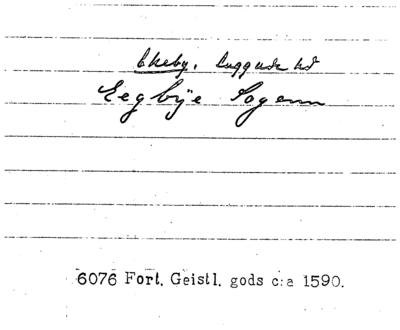 Ekeby. Luggude hd
Eegbÿe Sogenn
6076 Fort. Geistl. gods c:a 1590.